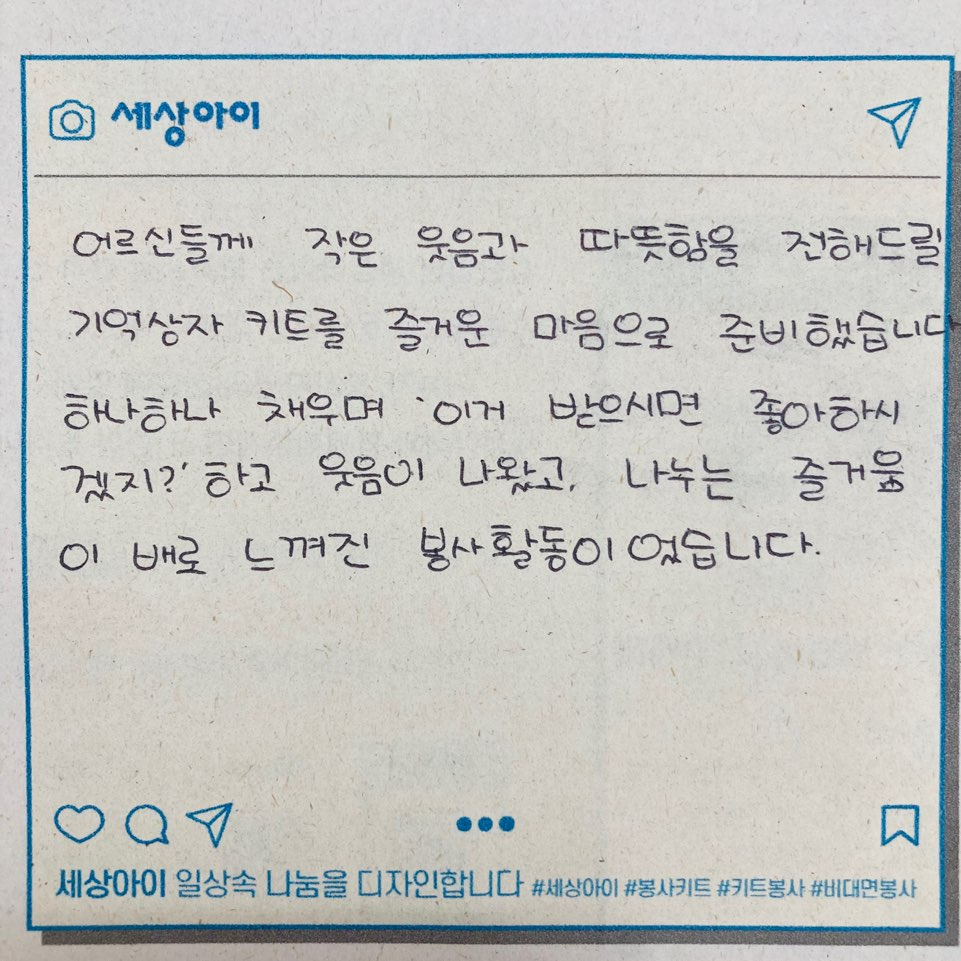 세상아이
어르신들께 작은 웃음과 따뜻함을 전해드릴
기억상자 키트를 즐거운 마음으로 준비했습니다
하나하나 채우며 '이거 받으시면 좋아하시
겠지?' 하고 웃음이 나왔고, 나누는 즐거움
이 배로 느껴진 봉사활동이었습니다.
세상아이 일상속 나눔을 디자인합니다 #세상아이 #봉사키트 #키트봉사 #비대면봉사